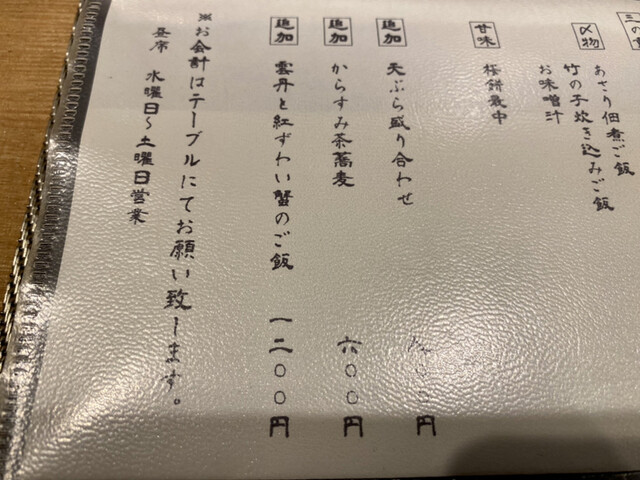 三の
〆物
あさり佃煮ご飯
竹の子炊き込みご飯
お味噌汁
甘味
桜餅最中
追加
天ぷら盛り合わせ
００円
追加
からすみ茶蕎麦
六００円
追加
雲丹と紅ずわい蟹のご飯
一二００円
※お会計はテーブルにてお願い致します。
昼席 水曜日～土曜日営業